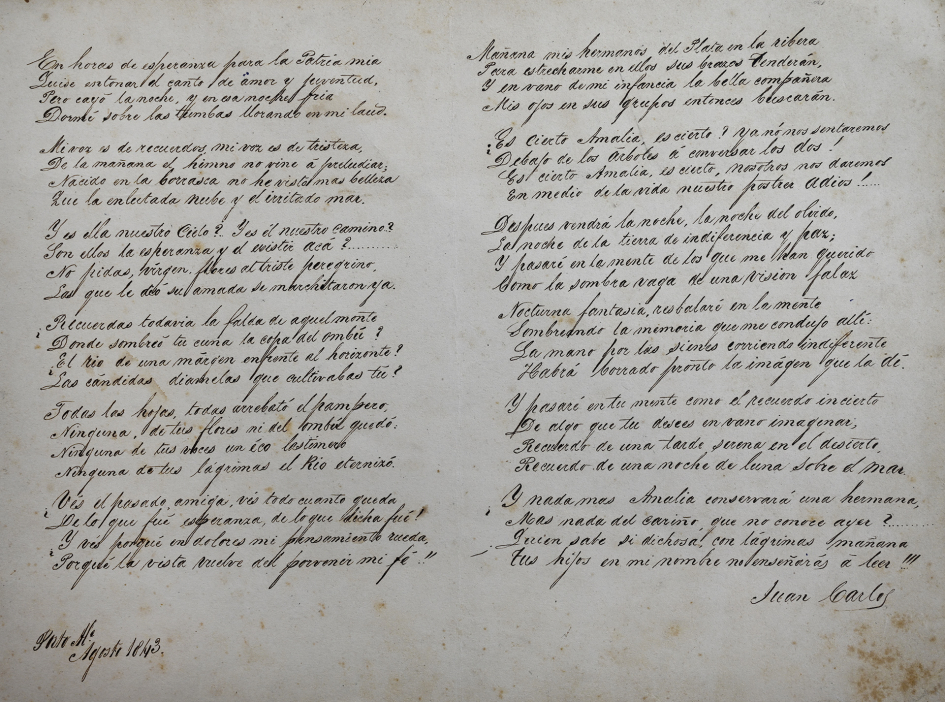 En horas de esperanza para la Patria mia
Quise entonar el canto de amor y juventud,
Pero cayó la noche, y en esa noche fria
Dormé sobre las tumbas llorando en mi laud.
Mi voz es de recuerdos, mi voz es de tristeza,
De la mañana el himno no vine á preludiar;
Nacido en la borrasca no he visto mas belleza
Que la enlutada nube y el irritado mar.
Y es ella nuestro Cielo? Y es él nuestro camino?
Son ellos la esperanza y el existir acá?..........
No pidas, virgen, flores al triste peregrino,
Las que le dió su amada se marchitaron ya.
¿Recuerdas todavia la falda de aquel monte
Donde sombreó tu cuna la copa del ombú?
¿El rio de una márgen enfrente al horizonte?
¿Las cándidas diamelas que cultivabas tú?
Todas las hojas, todas arrebató el pampero,
Ninguna, de tus flores ni del ombú quedó:
Ninguna de tus voces un éco lastimero
Ninguna de tus lágrimas el Rio eternizó.
¿Vés el pasado, amiga, vés todo cuanto queda
De lo que fué esperanza, de lo que dicha fué!
¿Y vés porqué en dolores mi pensamiento rueda,
Porqué la vista vuelve del porvenir mi fé!!
Porto Al.e
Agosto 1843.
Mañana mis hermanos, del Plata en la ribera
Para estrecharme en ellos sus brazos tenderán,
Y en vano de mi infancia la bella compañera
Mis ojos en sus grupos entonces buscarán.
¿Es cierto Amalia, es cierto? Ya nó nos sentaremos
Debajo de los árboles á conversar los dos!
Es cierto Amalia, es cierto, nosotros nos daremos
En medio de la vida nuestro postrer Adios!.....
Despues vendrá la noche, la noche del olvido,
La noche de la tierra de indiferencia y paz;
Y pasaré en la mente de los que me han querido
Como la sombra vaga de una vision falaz
Nocturna fantasia, resbalaré en la mente
Sombreando la memoria que me condujo allí:
La mano por las sienes corriendo indiferente
Habrá borrado pronto la imágen que la dé.
Y pasaré en tu mente como el recuerdo incierto
De algo que tu desees en vano imagenar;
Recuerdo de una tarde serena en el desierto,
Recuerdo de una noche de luna sobre el mar.
¿Y nada mas Amalia conservará una hermana,
Mas nada del cariño, que no conoce ayer?..........
Quien sabe si dichosa, con lágrimas mañana
tus hijos en mi nombre no enseñarás á leer!!!
Juan Carlos